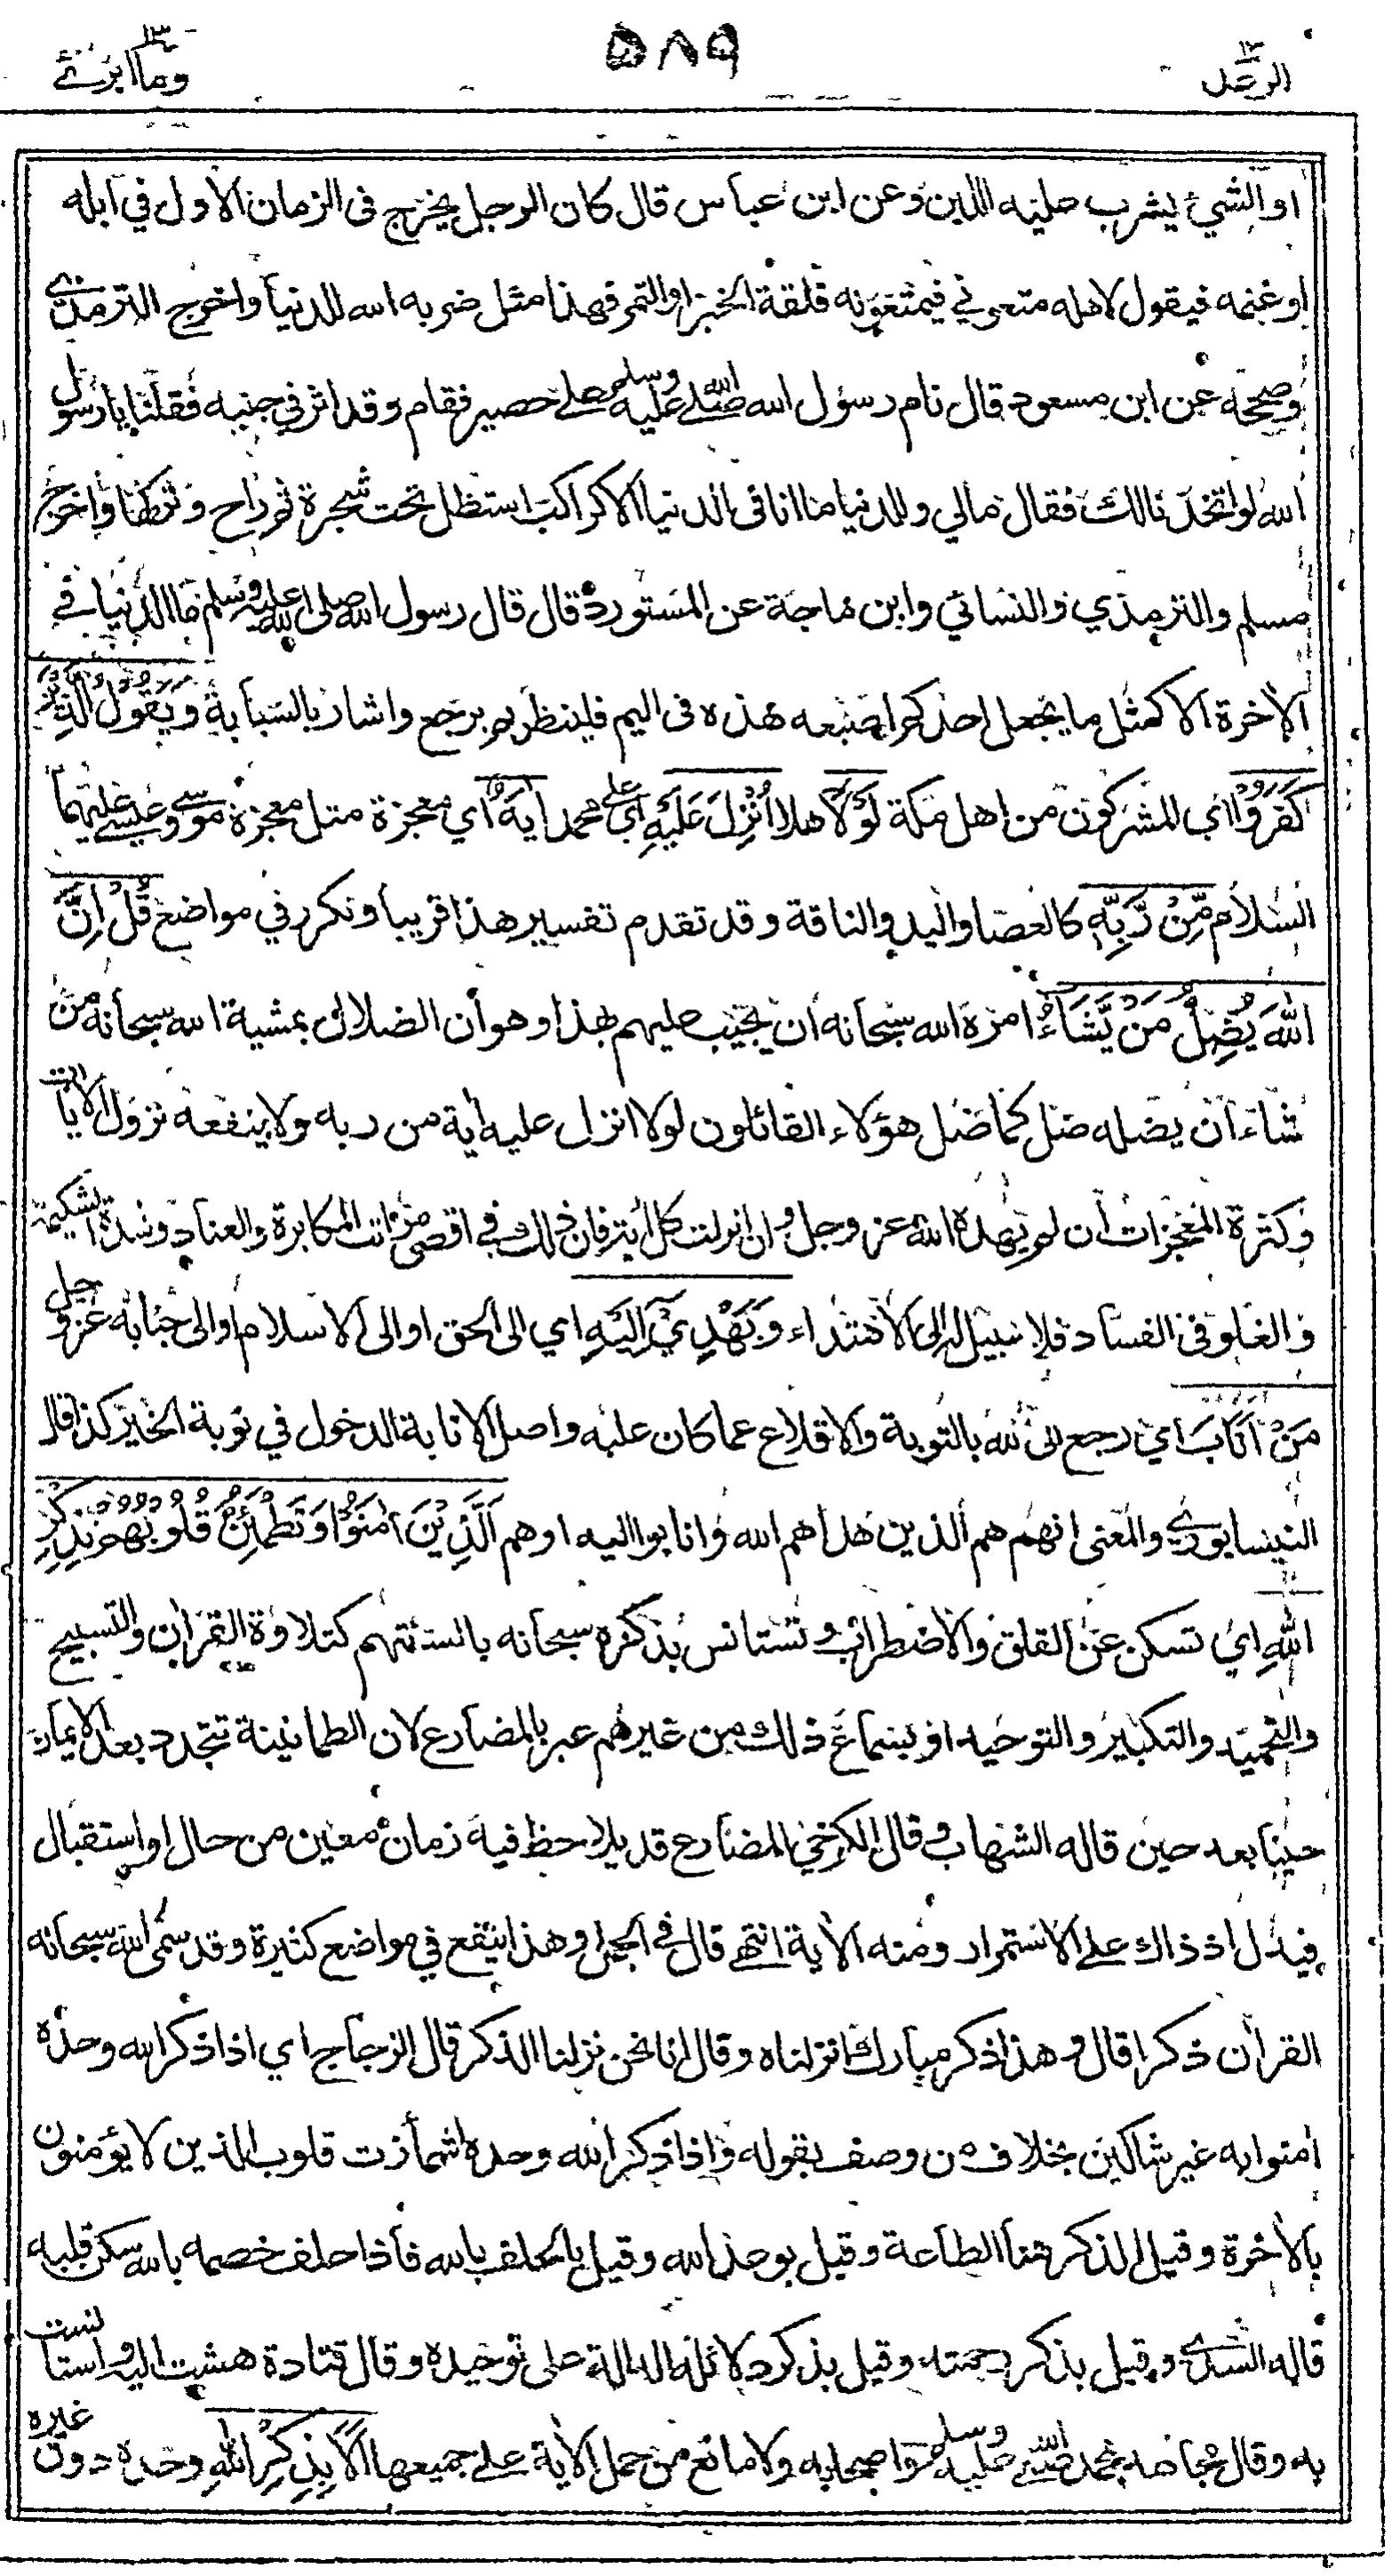 الرعد ١٣
٥٨٩
وما ابرئ ١٣
او الشئ يشرب عليه اللبن وعن ابن عباس قال كان الرجل يخرج فى الزمان الاول في ابله
او غنمه فيقول لاهله متعوني فيمتعونه فلقة الخبز او التمر فهذا مثل ضربه الله للدنيا واخرج الترمذي
وصححه عن ابن مسعود قال نام رسول الله صلى الله عليه وسلم على حصير فقام وقد اثر في جنبه فقلنا يا رسول
الله لو اتخذنا لك فقال مالي وللدنيا ما انا فى الدنيا الا كراكب استظل تحت شجرة ثم راح وتركها واخرج
مسلم والترمذي والنسائي وابن ماجة عن المستورد قال قال رسول الله صلى الله عليه وسلم ما الدنيا في
الاخرة الا كمثل ما يجعل احدكم اصبعه هذه فى اليم فلينظر بم يرجع واشار بالسبابة وَيَقُولُ الَّذِيْنَ
كَفَرُوْا اي المشركون من اهل مكة لَوْلَا هلا اُنْزِلَ عَلَيْهِ اي على محمد اٰيَةٌ اي معجزة مثل معجزة موسى وعيسى عليهما
السلام مِّنْ رَّبِّهٖ كالعصا واليد والناقة وقد تقدم تفسير هذا قريبا وتكرر في مواضع قُلْ اِنَّ
اللّٰهَ يُضِلُّ مَنْ يَّشَآءُ امره الله سبحانه ان يجيب عليهم بهذا وهو أن الضلال بمشية الله سبحانه من
شاء ان يضله ضل كما ضل هؤلاء القائلون لولا انزل عليه اية من ربه ولا ينفعه نزول الايات
وكثرة المعجزات ان لم يهده الله عز وجل وان انزلت كل اية فان ذلك في اقصى مراتب المكابرة والعناد وشدة الشكيمة
والغلو فى الفساد فلا سبيل له الى الاهتداء وَيَهْدِيْٓ اِلَيْهِ اي الى الحق او الى الاسلام او الى جنابه عز وجل
مَنْ اَنَابَ اي رجع الى الله بالتوبة والاقلاع عما كان عليه واصل الانابة الدخول في نوبة الخير كذا قال
النيسابوري والمعنى انهم هم الذين هداهم الله وانابوا اليه او هم اَلَّذِيْنَ اٰمَنُوْا وَتَطْمَئِنُّ قُلُوْبُهُمْ بِذِكْرِ
اللّٰهِ اي تسكن عن القلق والاضطراب وتستانس بذكره سبحانه بالسنتهم كتلاوة القران والتسبيح
والتحميد والتكبير والتوحيد او بسماع ذلك من غيرهم عبر بالمضارع لان الطمانينة تتجدد بعد الايمان
حينا بعد حين قاله الشهاب وقال الكرخي المضارع قد يلاحظ فيه زمان معين من حال او استقبال
فيدل اذ ذاك على الاستمرار ومنه الاية انتهى قال في الجمل وهذا ينفع في مواضع كثيرة وقد سمى الله سبحانه
القران ذكرا قال وهذا ذكر مبارك انزلناه وقال انا نحن نزلنا الذكر قال الزجاج اي اذا ذكر الله وحده
امنوا به غير شاكين بخلاف من وصف بقوله واذا ذكر الله وحده اشمأزت قلوب الذين لا يؤمنون
بالاخرة وقيل الذكر هنا الطاعة وقيل بوعد الله وقيل بالحلف بالله فاذا حلف خصمه بالله سكن قلبه
قاله السدي وقيل بذكر رحمته وقيل بذكر دلائله الدالة على توحيده وقال قتادة هشت اليه واستانست
به وقال مجاهد بمحمد صلى الله عليه وسلم واصحابه ولا مانع من حمل الاية على جميعها اَلَا بِذِكْرِ اللّٰهِ وحده دون غيره